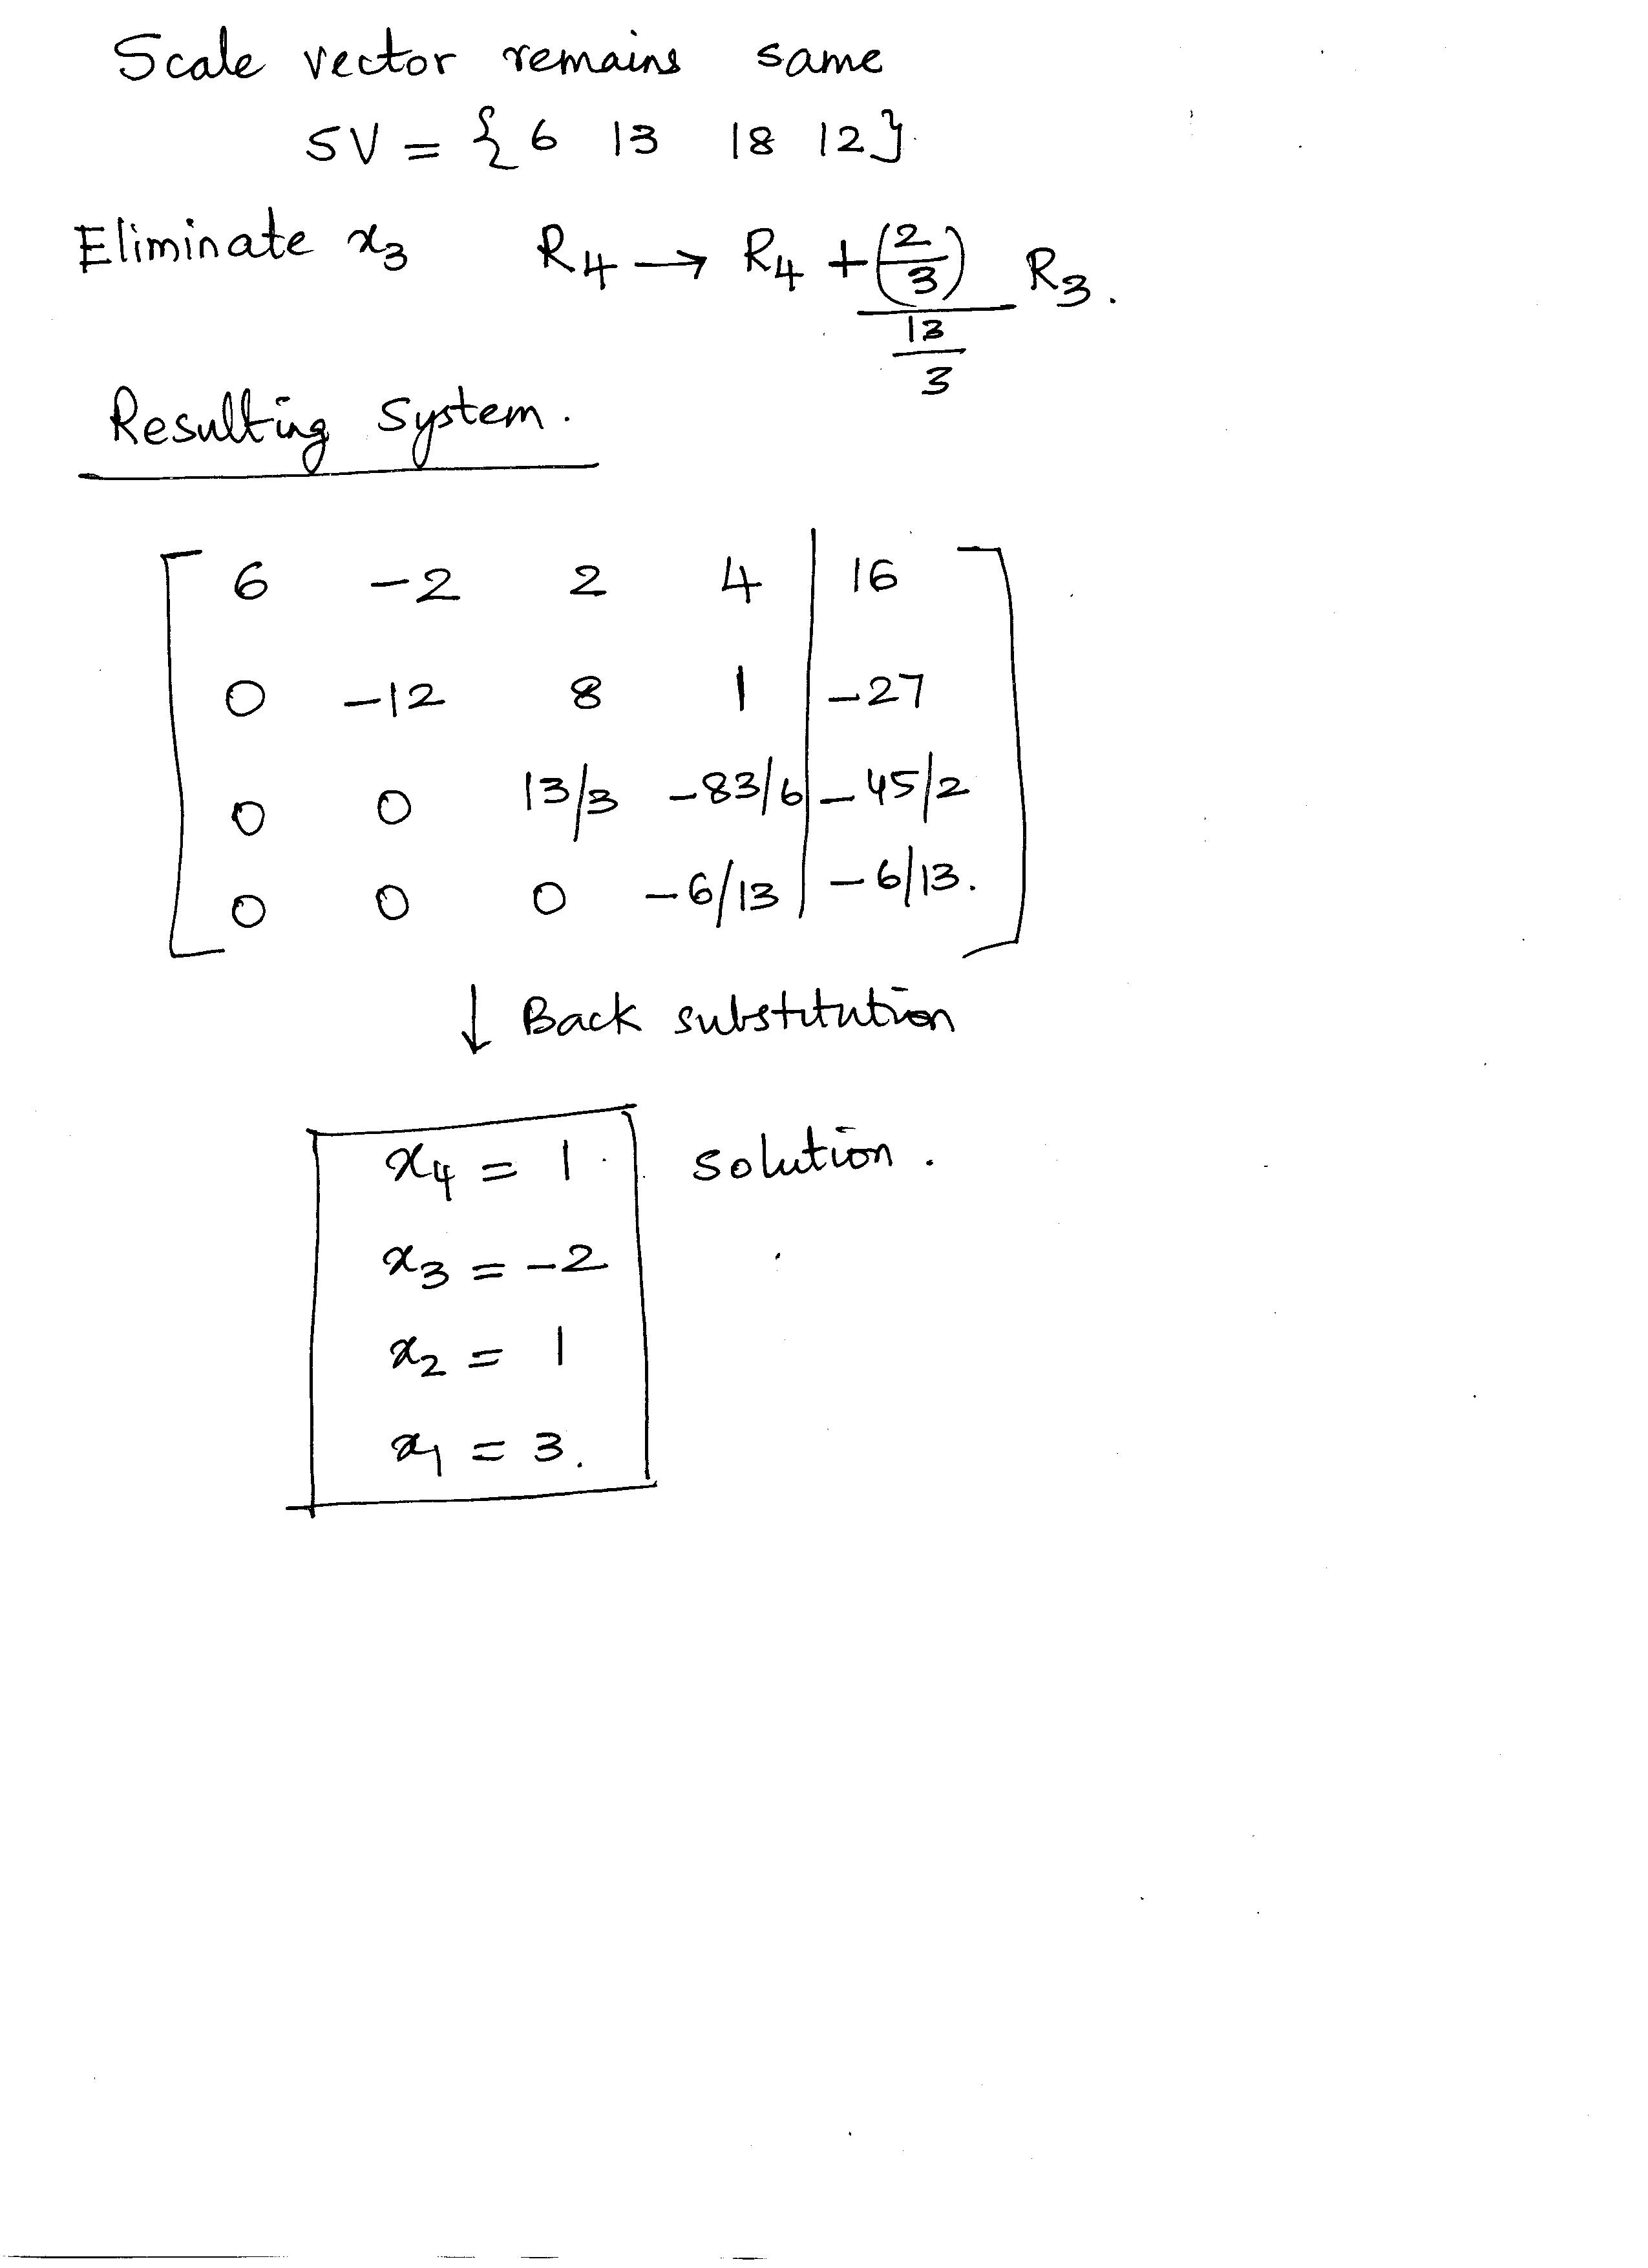 Scale vector remains same
SV = { 6 13 18 12 }
Eliminate x3 R4 → R4 + (2/3)/(13/3) R3.
Resulting system.
6 -2 2 4 | 16
0 -12 8 1 | -27
0 0 13/3 -83/6 | -45/2
0 0 0 -6/13 | -6/13.
↓ Back substitution
x4 = 1 solution.
x3 = -2
x2 = 1
x1 = 3.